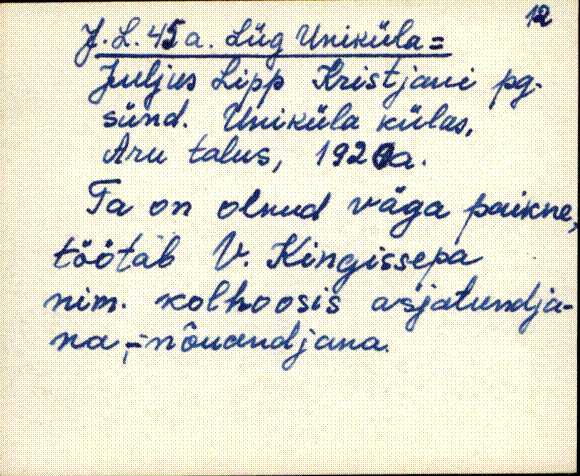 12
J. L. 45 a. Lüg Uniküla =
Juljus Lipp Kristjani pg.
sünd. Uniküla külas,
Aru talus, 1920a.
Ta on olnud väga paikne,
töötab V. Kingissepa
nim. kolhoosis asjatundja-
na,-nõuandjana.